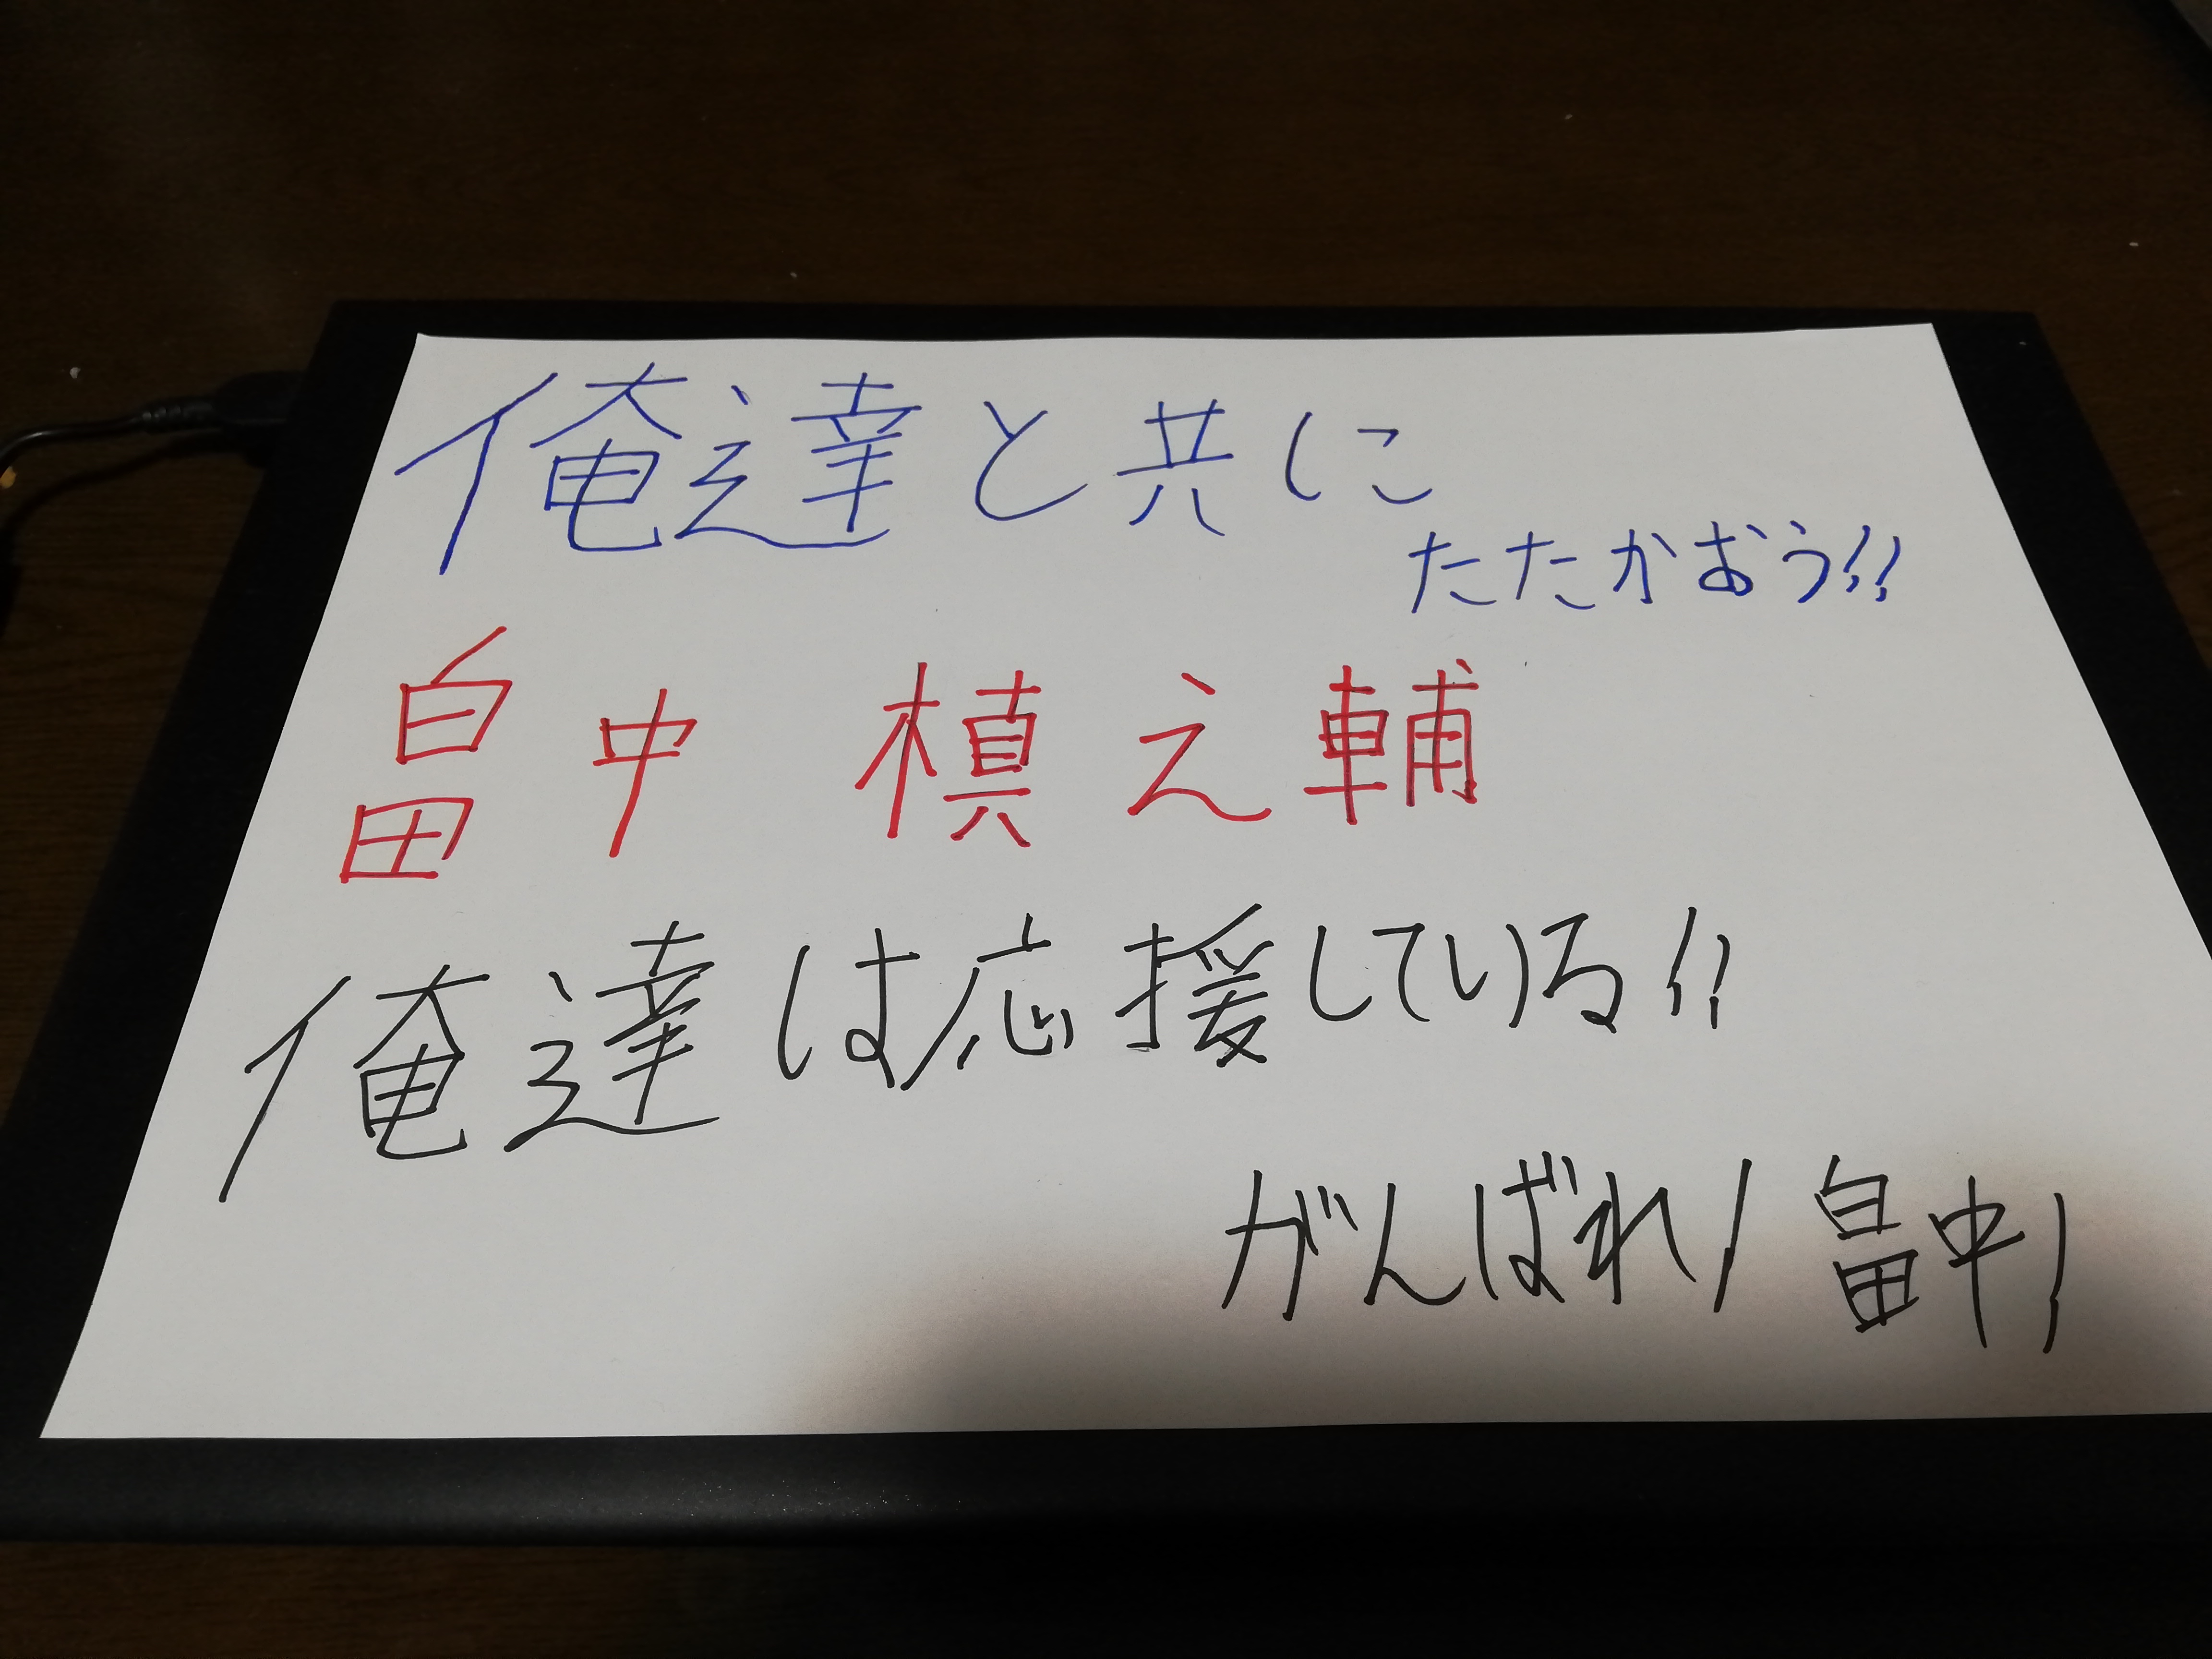 俺達と共に
たたかおう!!
畠中 槙之輔
俺達は応援している!!
がんばれ!畠中!